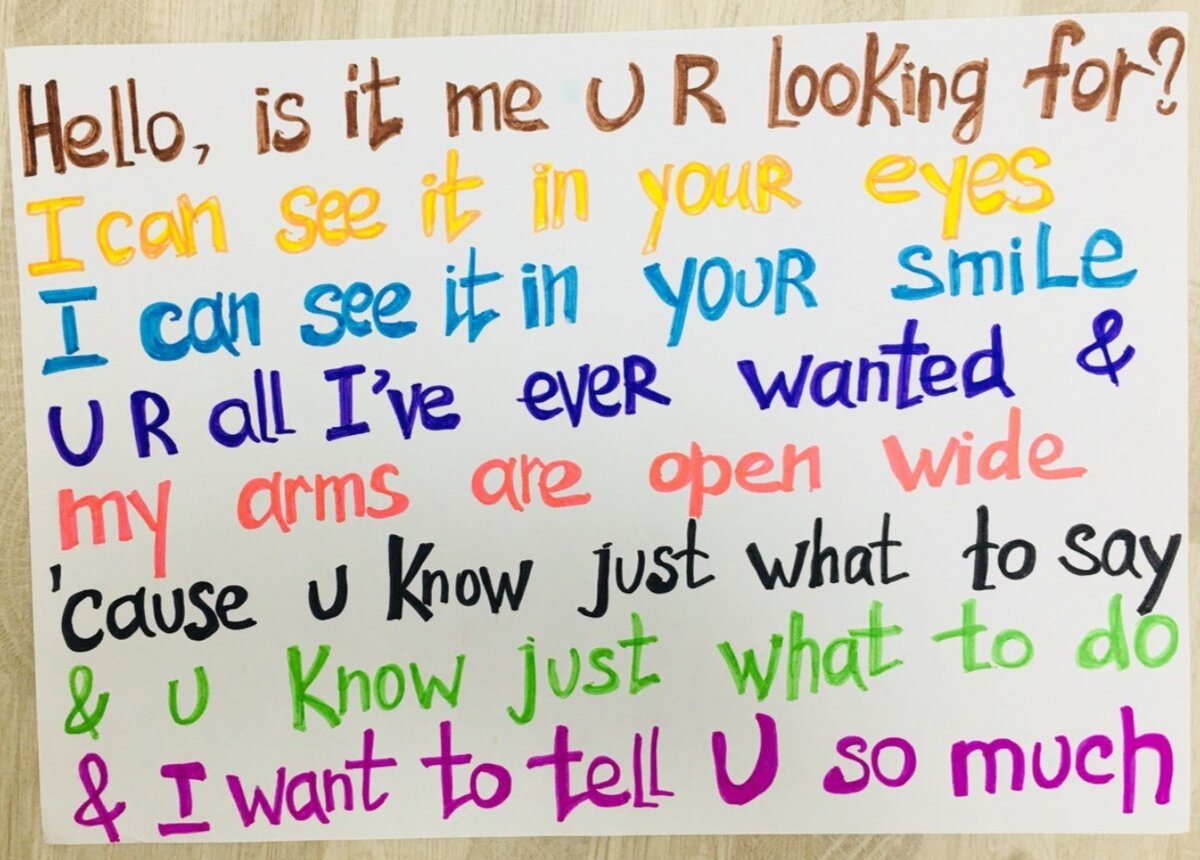 Hello, is it me U R looking for?
I can see it in your eyes
I can see it in your smile
U R all I've ever wanted &
my arms are open wide
'cause u know just what to say
& u know just what to do
& I want to tell U so much